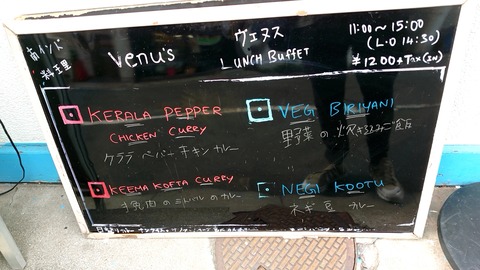 南インド
料理
Venu's
ヴェヌス
LUNCH BUFFET
11:00～15:00
(L.O 14:30)
¥1200+Tax(IN)
KERALA PEPPER
CHICKEN CURRY
ケララ ペパーチキンカレー
VEGI BIRIYANI
野菜の炊き込みご飯
KEEMA KOFTA CURRY
のカレー
NEGI KOOTU
ネギ豆カレー